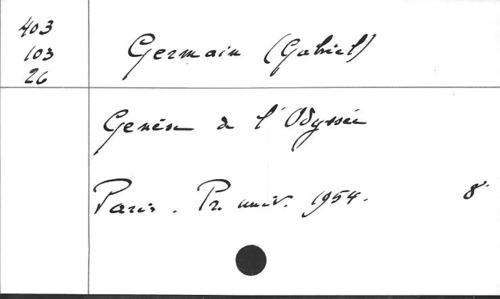 403
103
26
Germain (Gabriel)
Genèse de l'Odyssée
Paris. Pr. univ. 1954. 8°